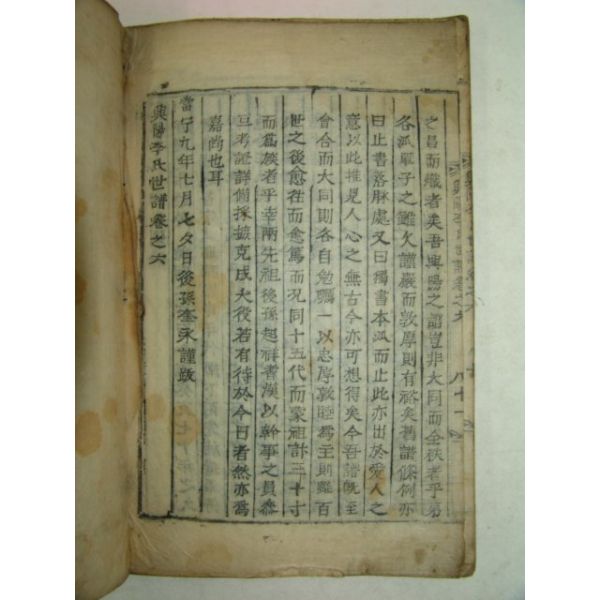 之昌而熾者矣吾興陽之譜豈非大同而全秩者乎第
各派單子之雖欠謹嚴而敦厚則有裕矣舊譜條例亦
曰止書落脉處又曰獨書本派而止此亦出於愛人之
意以此推是人心之無古今亦可想得矣今吾譜旣
會合而大同則各自勉勵一以忠厚敦睦爲主則雖百
世之後愈徃而愈篤而况同十五代而蒙祖計三十寸
而爲族者乎幸兩先祖後孫起祥耆漢以幹事之員叅
互考証詳備採摭克成大役若有待於今日者然亦爲
嘉尙也耳
當宁九年七月七夕日後孫奎永謹跋
興陽李氏世譜卷之六